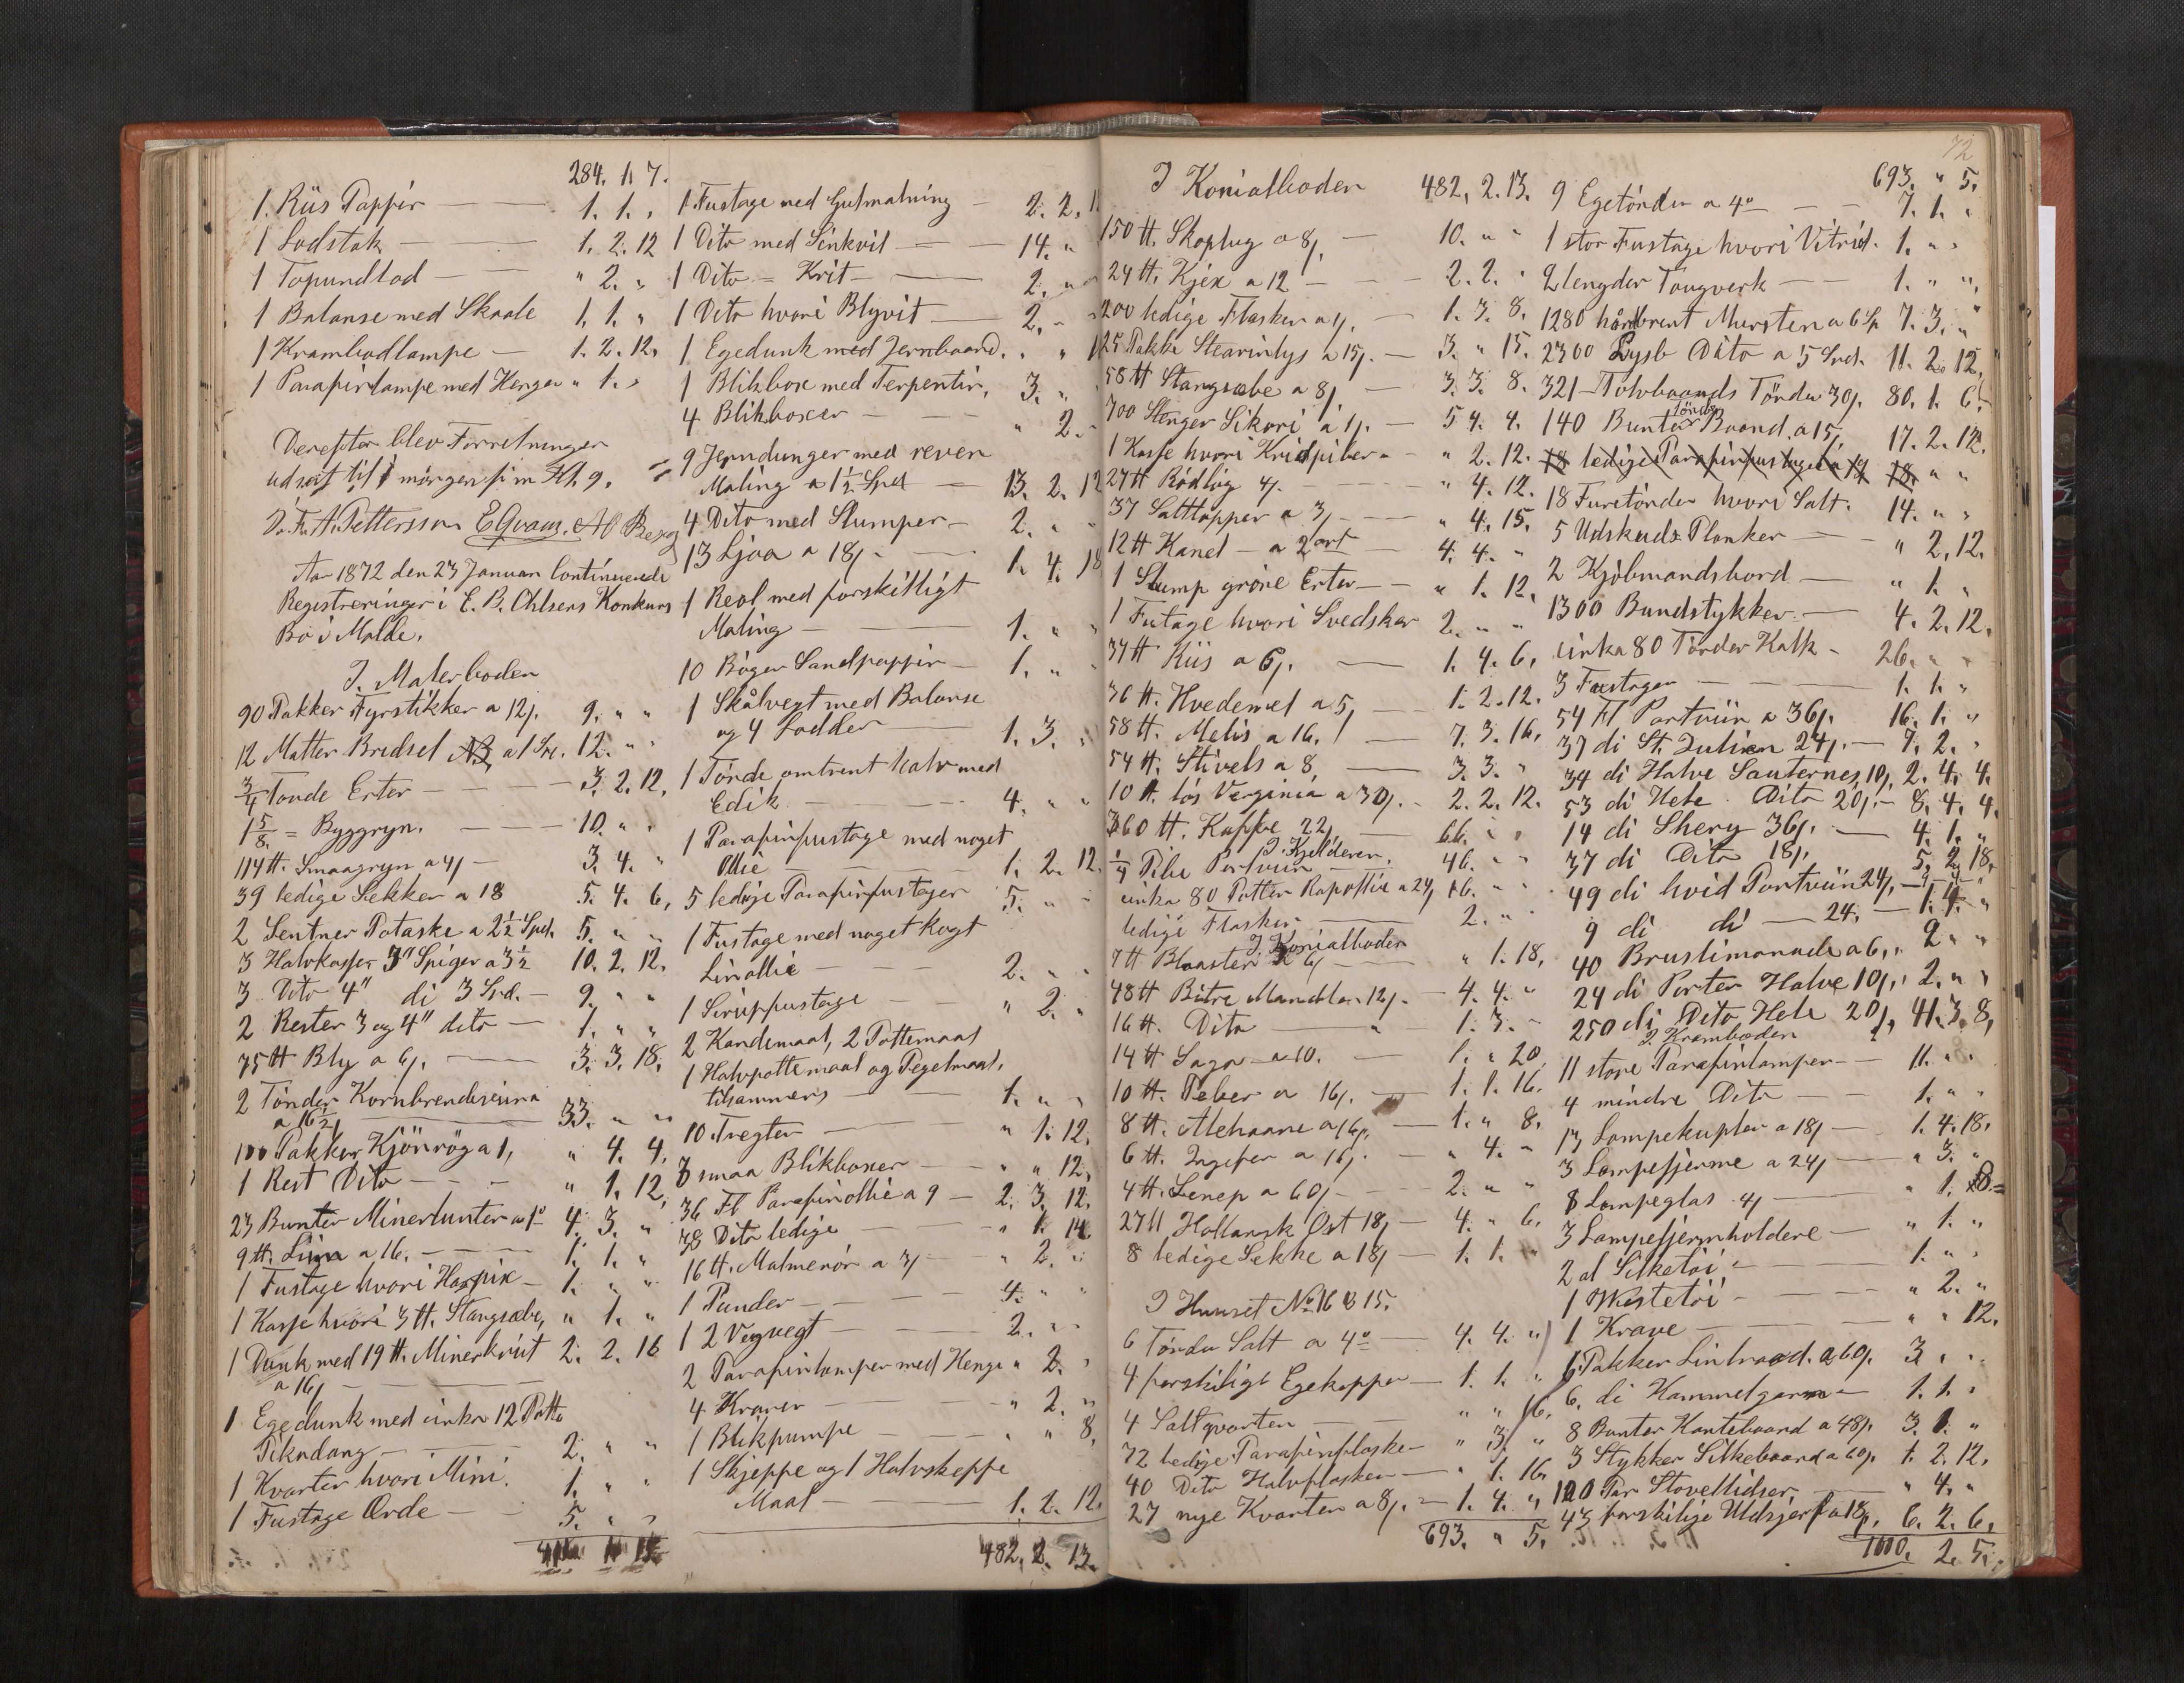 284. 1. 7.
1. Riis Pappir — 1. 1. "
1 Lodstok — 1. 2. 12
1 Topundlod — " 2. "
1 Balanse med Skaale 1. 1. "
1 Krambodlampe — 1. 2. 12.
1 Parafinlampe med Henger " 1. "
Derefter blev Forretninger
udsat til i morgen f.m. Kl. 9.
Fr. A. Pettersson EQvam.
Aar 1872 den 23 Januar Continuerede
Registreringer i E. B. Ohlsens Konkurs
Bo i Molde.
I. Malerboden
90 Pakker Fyrstikker a 12/. 9. " "
12 Matter Bredsel a 1 Sp. 12. " "
3/4 Tønde Erter — 3. 2. 12.
1 5/8 = Byggryn. — 10. " "
114 ℔. Smaagryn a 4/ — 3. 4. "
39 ledige Sekker a 18 5. 4. 6,
2 Sentner Potaske a 2½ Spd. 5. " "
3 Halvkasser 3" Spiger a 3½ 10. 2. 12.
3 Dito 4" di 3 Spd. — 9. " "
2 Rester 3 og 4" dito — 1. " "
75 ℔ Bly a 6/. — 3. 3. 18.
2 Tønder Kornbrendeviin
a 16½ — 33. " "
100 Pakker Kjönrög a 1, " 4. 4.
1 Rest Dito — " 1. 12,
23 Bunter Minerlunter a 1º 4. 3. "
9 ℔. Liim a 16. — 1. 1. "
1 Fustage hvori Harpix — 1. " "
1 Kasse hvori 3 ℔. Stangsæbe, " 1. "
1 Dunk med 19 ℔. Minerkrut 2. 2. 16
a 16/
1 Egedunk med cirka 12 Potte
2. " "
1 Kvarter hvori Mini. 1. " "
1 Fustage Orde — 5. " "
1 Fustage med Gulmalning — 2. 2. 1
1 Dito med Sinkvit — 14. "
1 Dito = Krit — 2. " "
1 Dito hvori Blyvit — 2. " "
1 Egedunk med Jernbaand. " "
1 Blikbox med Terpentin, 3. "
4 Blikboxer — " 2. "
9 Jerndunger med reven
Maling a 1½ Spd — 13. 2. 12
4 Dito med Slumper — 2. " "
13 Ljaa a 18/. — 1. 4. 18
1 Reol med forskilligt
Maling — 1. " "
10 Böger Sandpappir — 1. " "
1 Skålvegt med Balanse
og 4 Lodder — 1. 3. "
1 Tønde omtrent halv med
Edik — 4. " "
1 Parafinfustage med noget
Ollie — 1. 2. 12.
5 ledige Parafinfustager 5. " "
1 Fustage med noget kogt
Linollie — 2. " "
1 Sirupfustage — " 2. "
2 Kandemaal, 2 Pottemaal
1 Halvpottemaal og Pegelmaal,
tilsammens — 1. " "
10 Tregter — " 1. 12.
8 smaa Blikboxer — " " 12,
36 Fl Parafinollie a 9 — 2. 3. 12.
38 Dito ledige — " 1. 14
16 ℔. Malmerör a 3/ — " 2. "
1 Punder — 4. " "
1 2 Vogvegt — 2. " "
2 Parafinlamper med Henge " 2. "
4 Kraner — " 2. "
1 Blikpumpe — " " 8,
1 Skjeppe og 1 Halvskeppe
Maal — 1. 2. 12.
482. 2. 13.
72
I Konialboden 482, 2. 13.
150 ℔. Skoplug a 8/, — 10. " "
24 ℔. Kjex a 12 — 2. 2. "
200 ledige Flasker a 1/. — 1. 3. 8.
25 Pakke Stearinlys a 15/. — 3. " 15.
58 ℔ Stangsæbe a 8/ — 3. 3. 8.
700 Stenger Sikori a 1/. — 5 4. 4.
1 Kasse hvori Kridpiber — " 2. 12.
27 ℔ Rödlög 4/. — " 4. 12.
37 Saltlapper a 3/ — " 4. 15.
12 ℔ Kanel — a 2 ort 4. 4. "
1 Slump gröne Erter — " 1. 12.
1 Futage hvori Svedsker 2. " "
37 ℔ Riis a 6/. — 1. 4. 6,
36 ℔. Hvedemel a 5, — 1. 2. 12.
58 ℔. Melis a 16. — 7. 3. 16,
54 ℔. Stivels a 8, — 3. 3. "
10 ℔. lös Verginia a 30/. — 2. 2. 12.
360 ℔. Kaffe 22/. — 66. " "
I Kjelderen.
1/4 Pibe Portviin — 46. " "
cirka 80 Potter Rapollie a 24/ 16. " "
ledige Flasker — 2. " "
I Konialboden
7 ℔ Blaasten a 6/ — " 1. 18,
48 ℔ Bitre Mandler 12/. — 4. 4. "
16 ℔. Dito " 1. 3. "
14 ℔ Sago a 10. — 1. " 20.
10 ℔. Peber a 16/. — 1. 1. 16.
8 ℔. Alehaane a 16/. — 1. " 8.
6 ℔. Ingefer a 16/. — " 4. "
4 ℔. Senep a 60/. — 2. " "
27 ℔ Hollansk Ost 18/ — 4. " 6.
8 ledige Sekke a 18/ — 1. 1. "
I Huuset No 16 B 15.
6 Tønder Salt a 4º — 4. 4. "
4 forskilige Egekopper — 1. 1. "
4 Saltqvarten — " " 16.
72 ledige Parafinflasker " 3. "
40 Dito Halvflasker — " 1. 16.
27 nye Kvarter a 8/. — 1. 4. "
693. " 5.
693. " 5.
9 Egetönder a 4º — 7. 1. "
1 stor Fustage hvori Vitriol. 1. " "
2 lengder Tougverk — 1. " "
1280 hårdbrent Mursten a 6 Sp 7. 3. "
2300 Lysb Dito a 5 Spd. 11. 2. 12.
321 Tolvbaands Tönder 30/. 80. 1. 6.
140 Bunter Tönde Baand. a 15/. 17. 2. 12.
18 ledige Parafinfustager a 1 Sp 18. " "
18 Furetönder hvori Salt. 14. " "
5 Udskuds Planker — " 2. 12.
2 Kjöbmandsbord — " 1. "
1300 Bundstykker. — 4. 2. 12.
cirka 80 Tönder Kalk — 26. " "
3 Fustager — 1. 1. "
54 Fl Portviin a 36/. 16. 1. "
37 di St. Julien 24/. — 7. 2. "
34 di Halve Sauternes, 10/. 2. 4. 4.
53 di Hele Dito 20/. — 8. 4. 4.
14 di Shery 36/. — 4. 1. "
37 di Dito 18/. 5. 2. 18.
49 di hvid Portviin 24/. —
9 di di — 24. — 1. 4. "
40 Bruslimonade a 6,. 2 " "
24 di Porter Halve 10/. 2. " "
250 di Dito Hele 20/. 41. 3. 8,
I Kramboden
11 store Parafinlamper — 11. " "
4 mindre Dito — 1. " "
13 Lampekupler a 18/ — 1. 4. 18.
3 Lampeskjerme a 24/ — " 3. "
8 Lampeglas 4/ — " 1. 8. =
3 Lampeskjermholdere — " 1. "
2 al Silketöi — 1. " "
1 Westetöi — " 2. "
1 Krave — " " 12.
6 Pakker Lintraad. a 60/. 3 " "
6. di Hammelgarn — 1. 1. "
8 Bunter Kantebaand a 48/. 3. 1. "
3 Stykker Silkebaand a 60/. 1. 2. 12.
100 Par Stövellidser — " 4. "
43 forskilige Uldsjerf a 18/. 6. 2. 6,
1000. 2. 5.